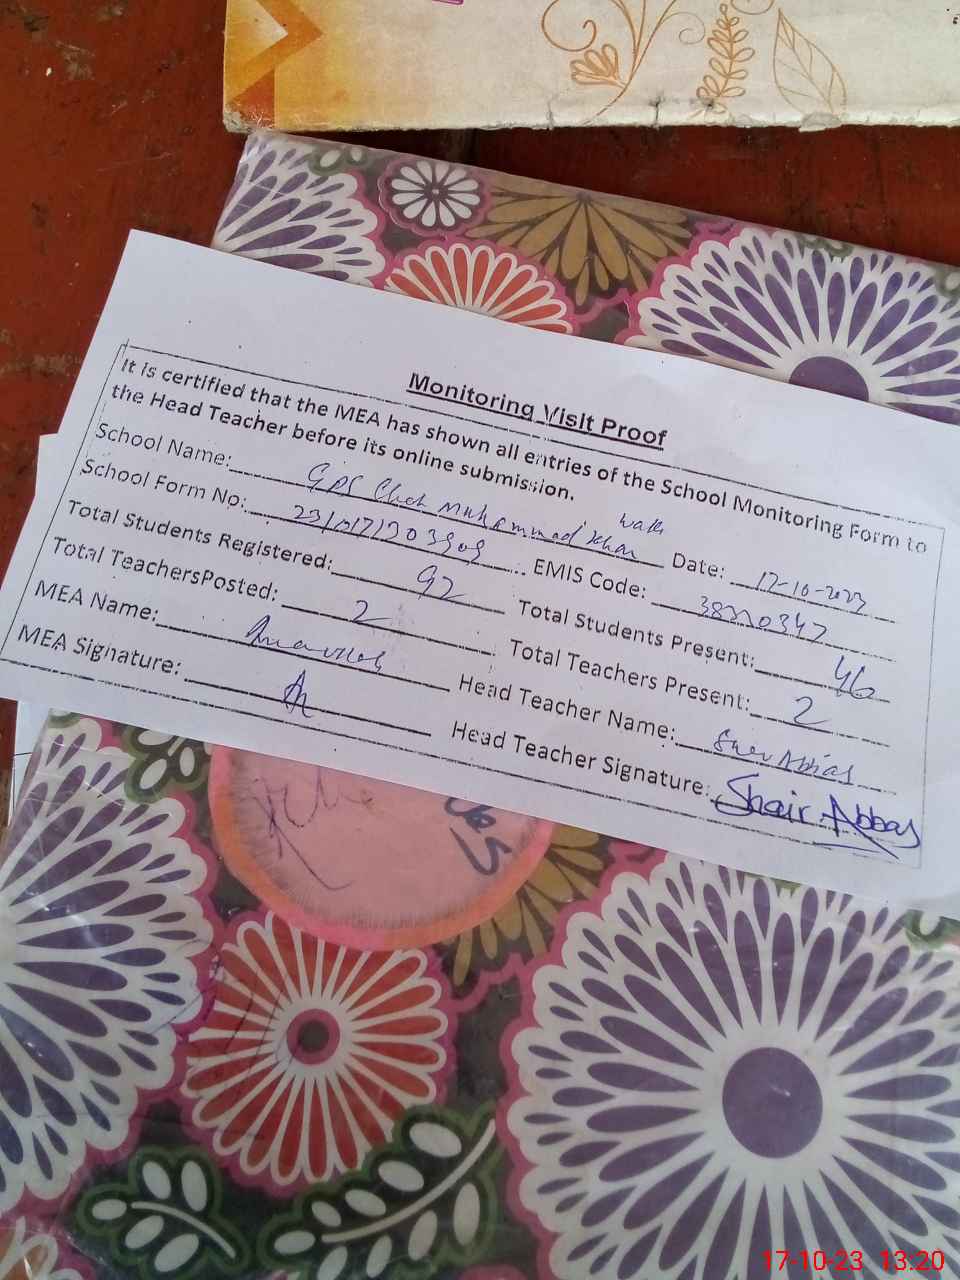 Monitoring Visit Proof
It is certified that the MEA has shown all entries of the School Monitoring Form to
the Head Teacher before its online submission.
School Name: GPS Muhammad Khan Date: 17-10-2023
School Form No: EMIS Code: 38320347
Total Students Registered: 92 Total Students Present: 46
Total TeachersPosted: 2 Total Teachers Present: 2
MEA Name: Head Teacher Name: Abbas
MEA Signature: Head Teacher Signature: Shair Abbas
17-10-23 13:20